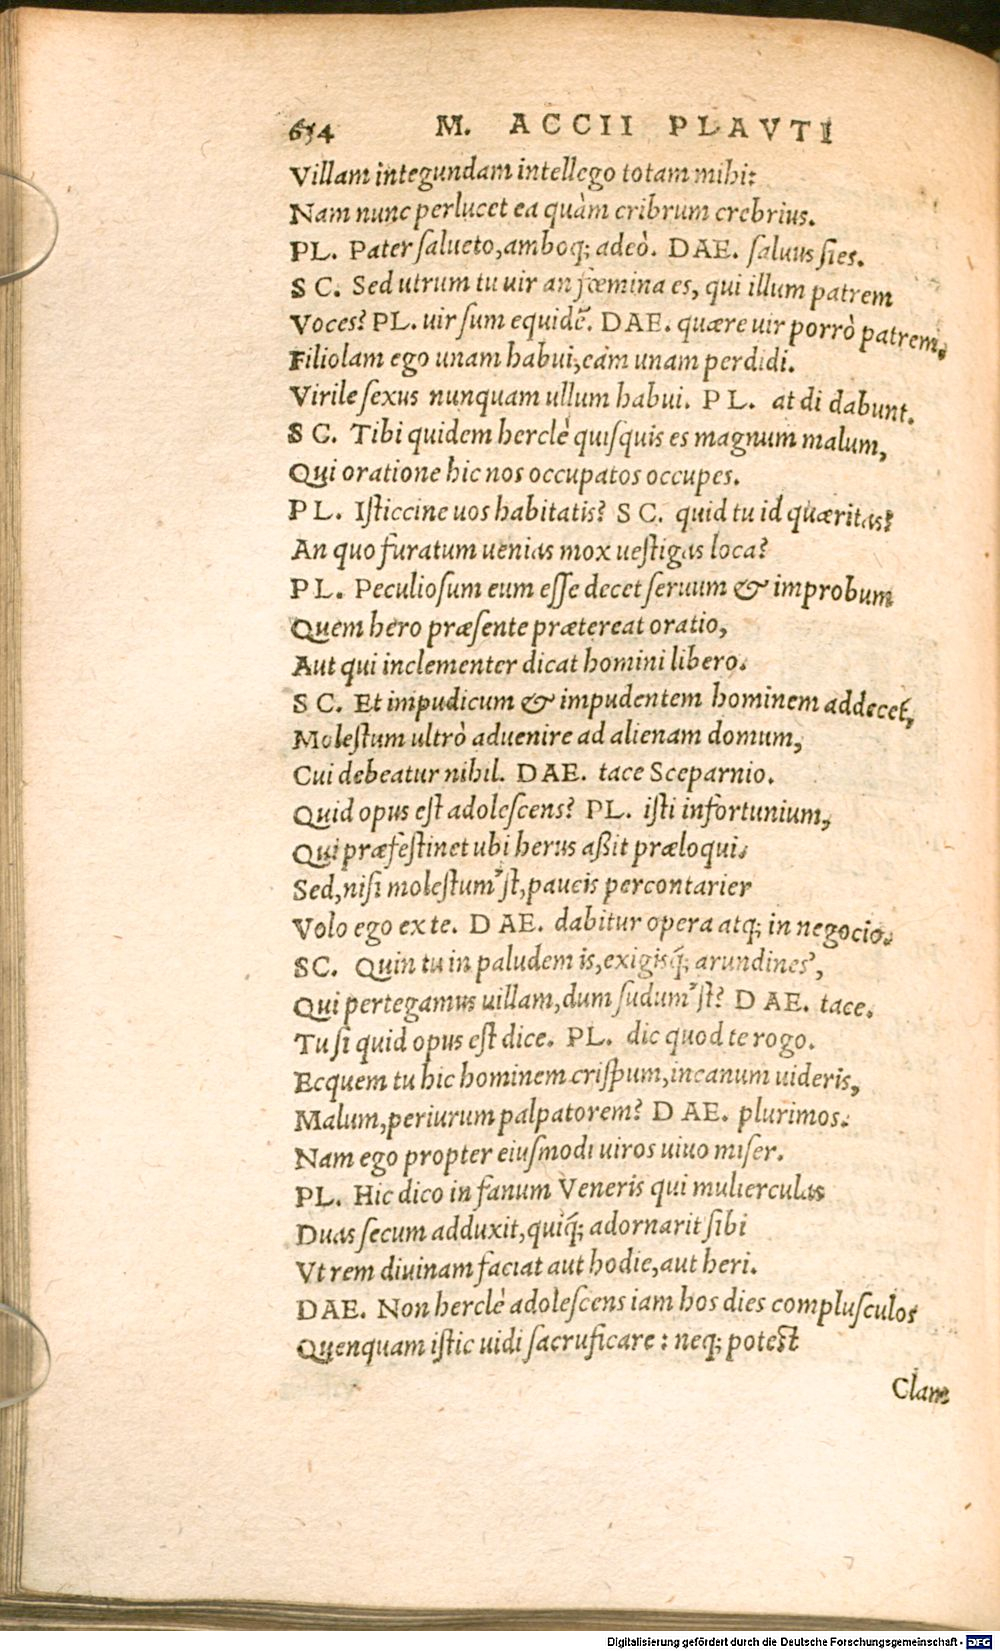 654 M. ACCII PLAVTI
Villam integundam intellego totam mihi:
Nam nunc perlucet ea quàm cribrum crebrius.
PL. Pater salueto, amboq; adeò. DAE. saluus sies.
SC. Sed utrum tu uir an fœmina es, qui illum patrem
Voces? PL. uir sum equidē. DAE. quære uir porrò patrem,
Filiolam ego unam habui, eam unam perdidi.
Virile sexus nunquam ullum habui. PL. at di dabunt.
SC. Tibi quidem herclè quisquis es magnum malum,
Qui oratione hic nos occupatos occupes.
PL. Isticcine uos habitatis? SC. quid tu id quæritas?
An quo furatum uenias mox uestigas loca?
PL. Peculiosum eum esse decet seruum & improbum
Quem hero præsente prætereat oratio,
Aut qui inclementer dicat homini libero.
SC. Et impudicum & impudentem hominem addecet,
Molestum ultrò aduenire ad alienam domum,
Cui debeatur nihil. DAE. tace Sceparnio.
Quid opus est adolescens? PL. isti infortunium,
Qui præfestinet ubi herus aßit præloqui.
Sed, nisi molestum'st, paucis percontarier
Volo ego ex te. DAE. dabitur opera atq; in negocio.
SC. Quin tu in paludem is, exigisq́; arundines,
Qui pertegamus uillam, dum sudum'st? DAE. tace.
Tu si quid opus est dice. PL. dic quod te rogo.
Ecquem tu hic hominem crispum, incanum uideris,
Malum, periurum palpatorem? DAE. plurimos.
Nam ego propter eiusmodi uiros uiuo miser.
PL. Hic dico in fanum Veneris qui mulierculas
Duas secum adduxit, quiq́; adornarit sibi
Vt rem diuinam faciat aut hodie, aut heri.
DAE. Non herclè adolescens iam hos dies complusculos
Quenquam istic uidi sacruficare: neq; potest
Clam
Digitalisierung gefördert durch die Deutsche Forschungsgemeinschaft - DFG